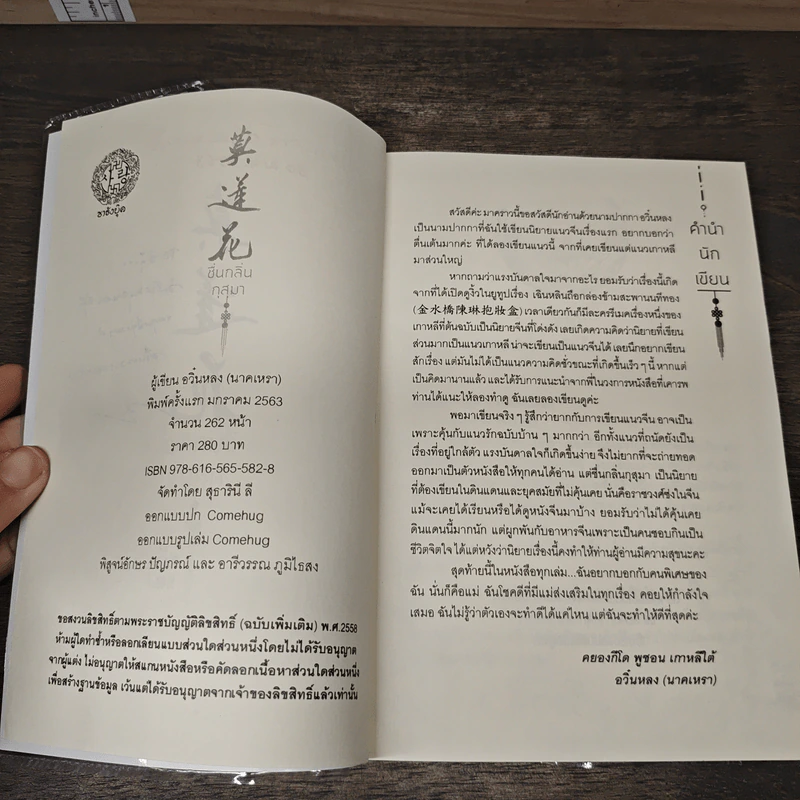 ซาร่งบุ๊ค
莫
蓮
花
ชื่นกลิ่น
กุสุมา
ผู้เขียน อวิ๋นหลง (นาคเหรา)
พิมพ์ครั้งแรก มกราคม 2563
จำนวน 262 หน้า
ราคา 280 บาท
ISBN 978-616-565-582-8
จัดทำโดย สุธาริณี ลี
ออกแบบปก Comehug
ออกแบบรูปเล่ม Comehug
พิสูจน์อักษร ปัญภรณ์ และ อารีวรรณ ภูมิไธสง
ขอสงวนลิขสิทธิ์ตามพระราชบัญญัติลิขสิทธิ์ (ฉบับเพิ่มเติม) พ.ศ.2558
ห้ามผู้ใดทำซ้ำหรือลอกเลียนแบบส่วนใดส่วนหนึ่งโดยไม่ได้รับอนุญาต
จากผู้แต่ง ไม่อนุญาตให้สแกนหนังสือหรือคัดลอกเนื้อหาส่วนใดส่วนหนึ่ง
เพื่อสร้างฐานข้อมูล เว้นแต่ได้รับอนุญาตจากเจ้าของลิขสิทธิ์แล้วเท่านั้น
คำนำ
นัก
เขียน
สวัสดีค่ะ มาคราวนี้ขอสวัสดีนักอ่านด้วยนามปากกา อวิ๋นหลง
เป็นนามปากกาที่ฉันใช้เขียนนิยายแนวจีนเรื่องแรก อยากบอกว่า
ตื่นเต้นมากค่ะ ที่ได้ลองเขียนแนวนี้ จากที่เคยเขียนแต่แนวเกาหลี
มาส่วนใหญ่
หากถามว่าแรงบันดาลใจมาจากอะไร ยอมรับว่าเรื่องนี้เกิด
จากที่ได้เปิดดูงิ้วในยูทูปเรื่อง เฉินหลินถือกล่องข้ามสะพานนทีทอง
(金水橋陳琳抱妝盒) เวลาเดียวกันก็มีละครรีเมคเรื่องหนึ่งของ
เกาหลีที่ต้นฉบับเป็นนิยายจีนที่โด่งดัง เลยเกิดความคิดว่านิยายที่เขียน
ส่วนมากเป็นแนวเกาหลี น่าจะเขียนเป็นแนวจีนได้ เลยนึกอยากเขียน
สักเรื่อง แต่มันไม่ได้เป็นแนวความคิดชั่วขณะที่เกิดขึ้นเร็วๆ นี้ หากแต่
เป็นคิดมานานแล้ว และได้รับการแนะนำจากพี่ในวงการหนังสือที่เคารพ
ท่านได้แนะให้ลองทำดู ฉันเลยลองเขียนดูค่ะ
พอมาเขียนจริงๆ รู้สึกว่ายากกับการเขียนแนวจีน อาจเป็น
เพราะคุ้นกับแนวรักฉบับบ้าน ๆ มากกว่า อีกทั้งแนวที่ถนัดยังเป็น
เรื่องที่อยู่ใกล้ตัว แรงบันดาลใจก็เกิดขึ้นง่าย จึงไม่ยากที่จะถ่ายทอด
ออกมาเป็นตัวหนังสือให้ทุกคนได้อ่าน แต่ชื่นกลิ่นกุสุมา เป็นนิยาย
ที่ต้องเขียนในดินแดนและยุคสมัยที่ไม่คุ้นเคย นั่นคือราชวงศ์ซ่งในจีน
แม้จะเคยได้เรียนหรือได้ดูหนังจีนมาบ้าง ยอมรับว่าไม่ได้คุ้นเคย
ดินแดนนี้มากนัก แต่ผูกพันกับอาหารจีนเพราะเป็นคนชอบกินเป็น
ชีวิตจิตใจ ได้แต่หวังว่านิยายเรื่องนี้คงทำให้ท่านผู้อ่านมีความสุขนะคะ
สุดท้ายนี้ในหนังสือทุกเล่ม...ฉันอยากบอกกับคนพิเศษของ
ฉัน นั่นก็คือแม่ ฉันโชคดีที่มีแม่ส่งเสริมในทุกเรื่อง คอยให้กำลังใจ
เสมอ ฉันไม่รู้ว่าตัวเองจะทำดีได้แค่ไหน แต่ฉันจะทำให้ดีที่สุดค่ะ
คยองกีโด พูชอน เกาหลีใต้
อวิ๋นหลง (นาคเหรา)